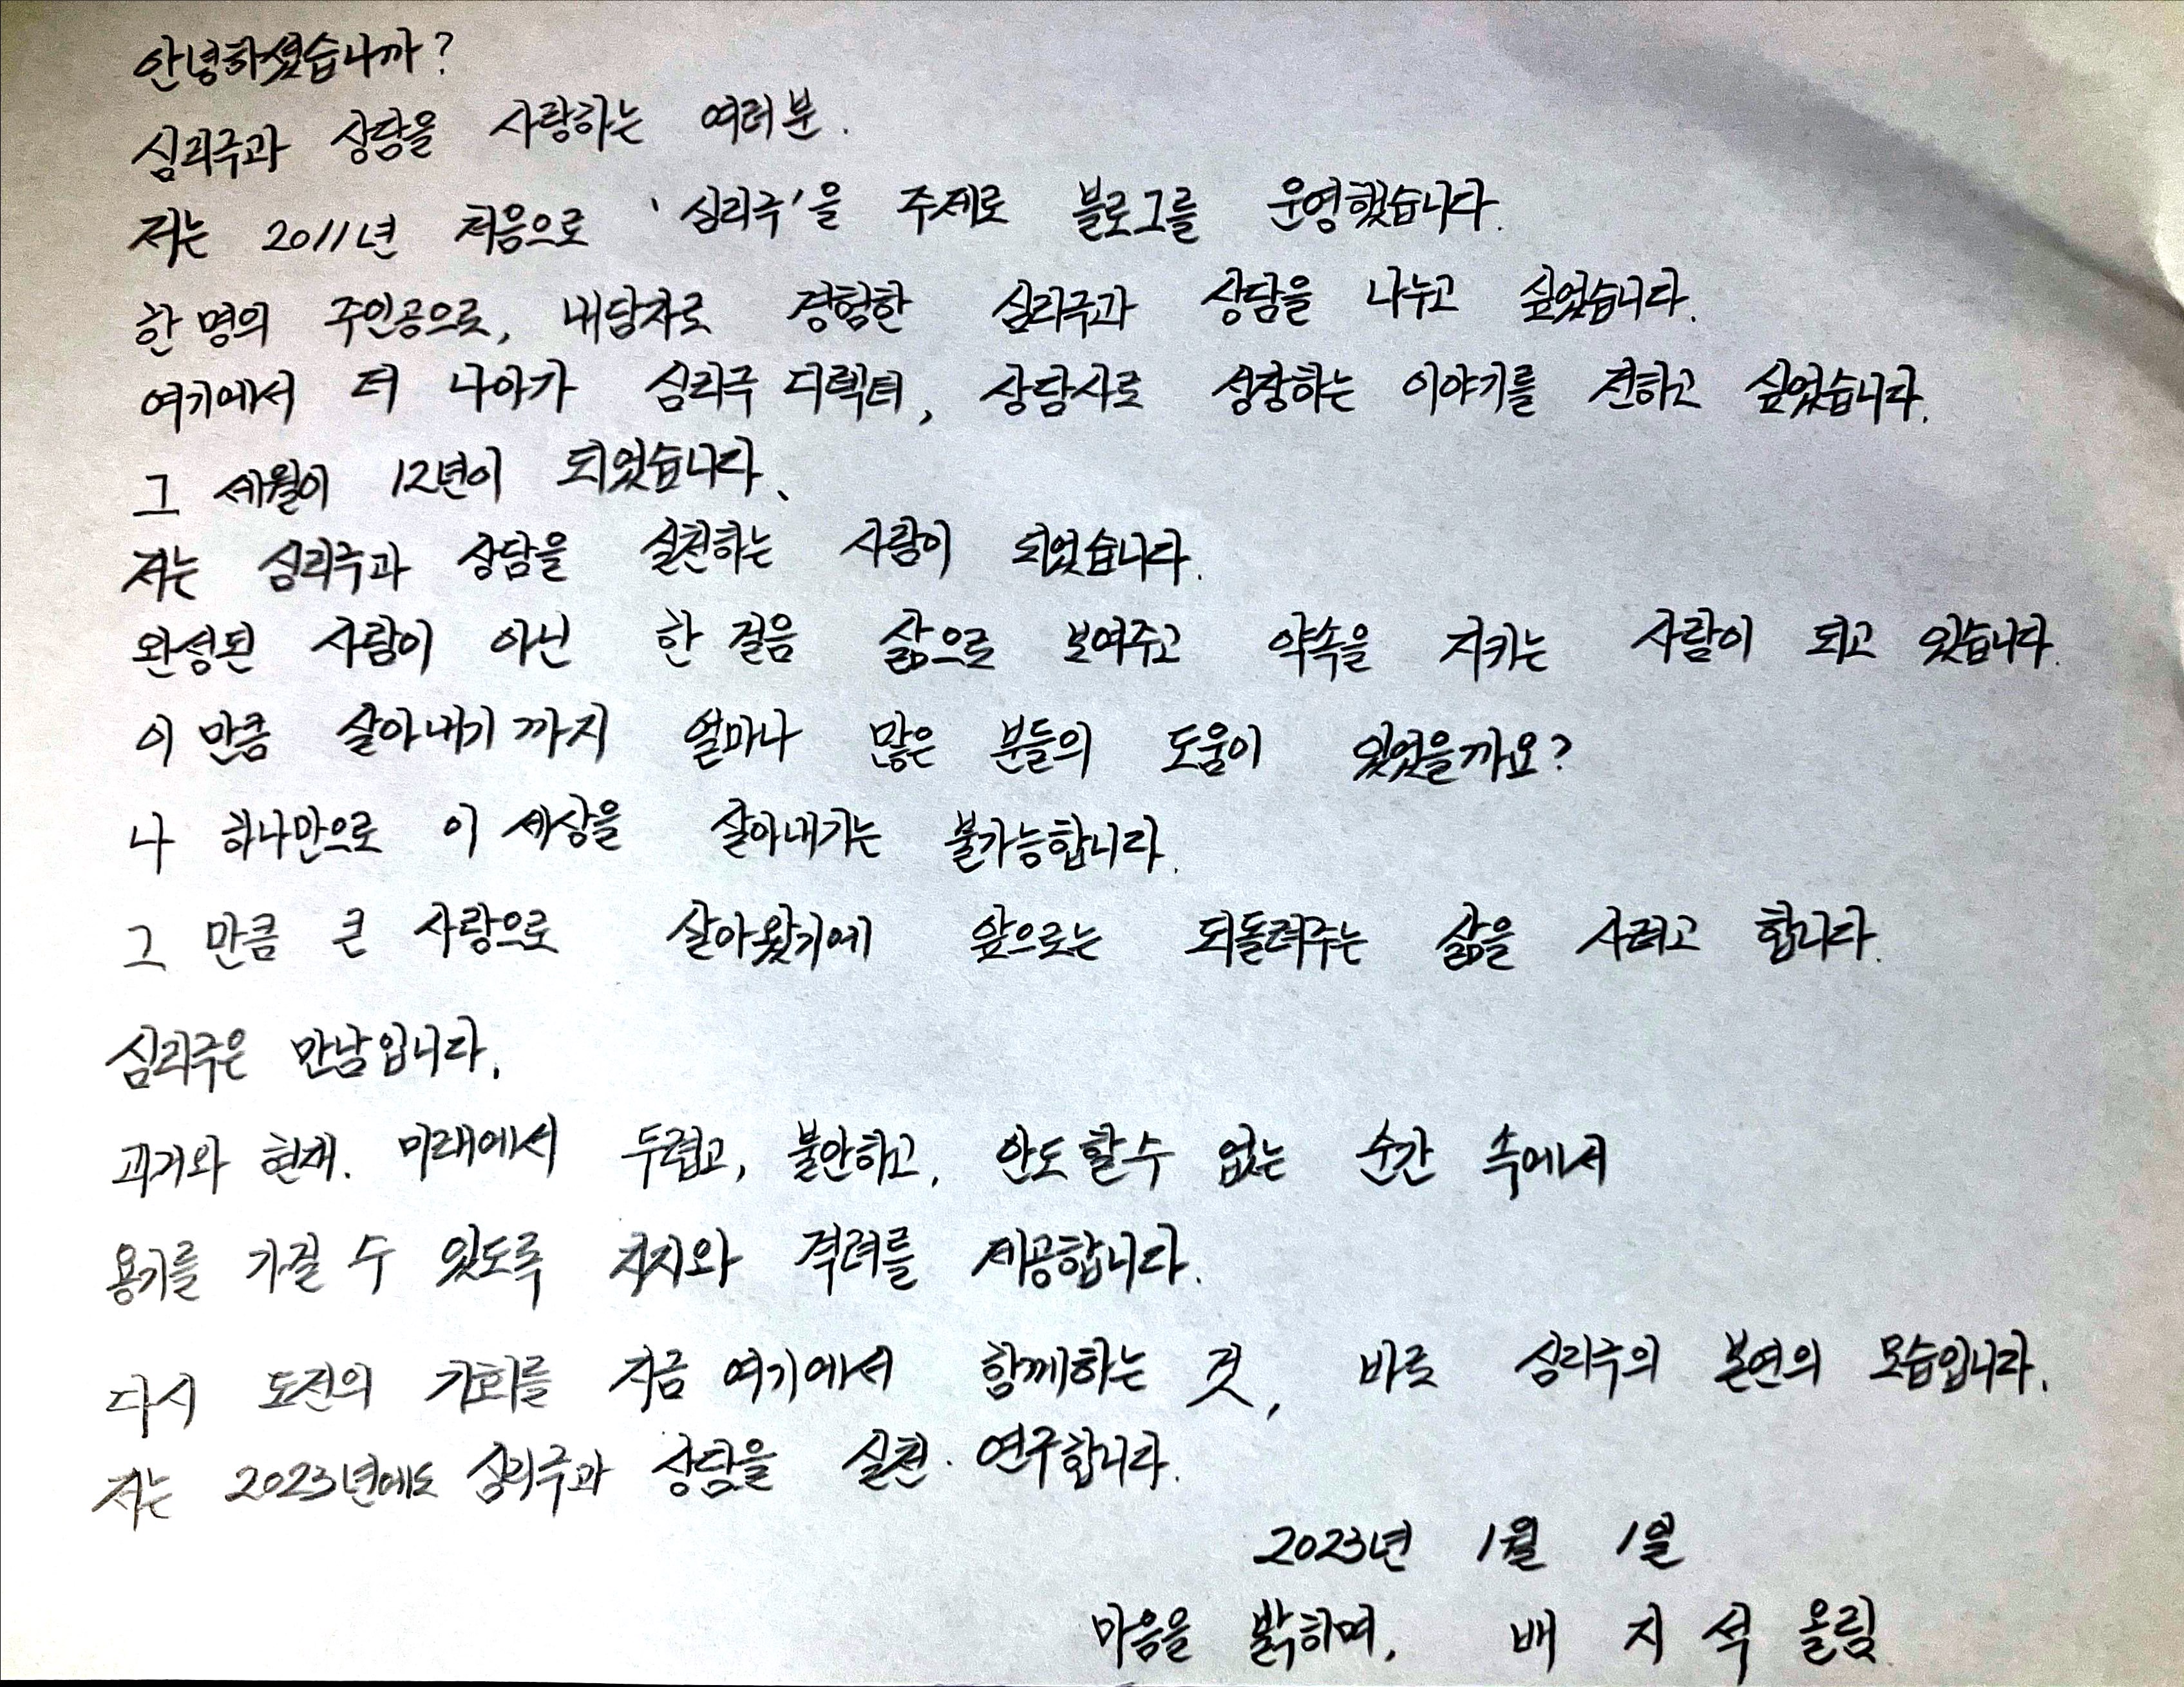 안녕하셨습니까?
심리극과 상담을 사랑하는 여러분.
저는 2011년 처음으로 '심리극'을 주제로 블로그를 운영했습니다.
한 명의 주인공으로, 내담자로 경험한 심리극과 상담을 나누고 싶었습니다.
여기에서 더 나아가 심리극 디렉터, 상담사로 성장하는 이야기를 전하고 싶었습니다.
그 세월이 12년이 되었습니다.
저는 심리극과 상담을 실천하는 사람이 되었습니다.
완성된 사람이 아닌 한 걸음 삶으로 보여주고 약속을 지키는 사람이 되고 있습니다.
이 만큼 살아내기 까지 얼마나 많은 분들의 도움이 있었을까요?
나 하나만으로 이 세상을 살아내기는 불가능합니다.
그 만큼 큰 사랑으로 살아왔기에 앞으로는 되돌려주는 삶을 사려고 합니다.
심리극은 만남입니다.
과거와 현재. 미래에서 두렵고, 불안하고, 안도할 수 없는 순간 속에서
용기를 가질 수 있도록 지지와 격려를 제공합니다.
다시 도전의 기회를 지금 여기에서 함께하는 것, 바로 심리극의 본연의 모습입니다.
저는 2023년에도 심리극과 상담을 실천·연구합니다.
2023년 1월 1일
마음을 밝히며, 배 지 석 올림